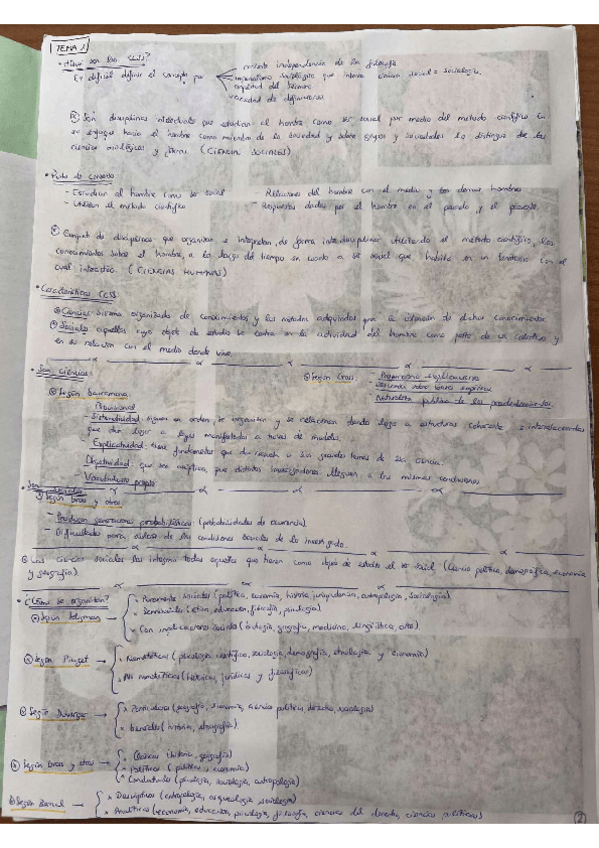 TEMA 1
• ¿Qué son las CCSS?
Es difícil definir el concepto por
reciente independencia de la filosofía
imperialismo sociológico que intenta ciencia social = sociología.
amplitud del término
variedad de definiciones
Son disciplinas intelectuales que estudian al hombre como ser social por medio del método científico. Es
su enfoque hacia el hombre como miembro de la sociedad y sobre grupos y sociedades lo distingue de las
ciencias biológicas y físicas. (CIENCIAS SOCIALES)
• Punto de consenso
- Estudian al hombre como ser social
- Relaciones del hombre con el medio y los demás hombres
- Utilizan el método científico
- Respuestas dadas por el hombre en el pasado y el presente.
Conjunto de disciplinas que organizan e integran, de forma interdisciplinar utilizando el método científico, los
conocimientos sobre el hombre, a lo largo del tiempo en cuanto a ser social que habita en un territorio con el
cual interactúa. (CIENCIAS HUMANAS)
• Características CCSS:
Ciencias: sistema organizado de conocimientos y los métodos adquiridos para la obtención de dichos conocimientos.
Sociales: aquellas cuyo objeto de estudio se centra en la actividad del hombre como parte de un colectivo y
en su relación con el medio donde vive.
• Son ciencias:
Según Gross:
- Proporciona explicaciones
- Descansa sobre bases empíricas
- Naturaleza pública de los procedimientos.
Según
- Provisional
- Sistematicidad: siguen un orden, se organizan y se relacionan dando lugar a estructuras coherentes e interrelacionadas
que dan lugar a leyes manifestadas a través de modelos.
- Explicatividad: tiene fundamentos que dan a sus grandes temas de esa ciencia.
- Objetividad: que ser empírica, que distintos investigadores lleguen a las mismas conclusiones
- Vocabulario propio
• Son sociales
Según Gross y otros
- Producen generaciones probabilísticas: (probabilidades de ocurrencia)
- Dificultades para aislarse de las condiciones sociales de lo investigado.
Las ciencias sociales las integran todas aquellas que tienen como objeto de estudio el ser social (ciencia política, demografía, economía
y geografía)
• ¿Cómo se organizan?
Según Seligman
Puramente sociales (política, economía, historia, jurisprudencia, antropología, sociología)
Semisociales (ética, educación, filosofía, psicología)
Con implicaciones sociales (biología, geografía, medicina, lingüística, arte).
Según Piaget
Nomotéticas (psicología científica, sociología, demografía, etnología y economía)
No nomotéticas (históricas, jurídicas y filosóficas)
Según Duverger
Particulares (geografía, economía, ciencia política, derecho, sociología)
Generales (historia, etnografía).
Según Gross y otros
Clásicas (historia, geografía)
Políticas (política y economía)
Conductuales (psicología, sociología, antropología)
Según
Descriptivas (antropología, arqueología, sociología)
Analíticas (economía, educación, psicología, filosofía, ciencias del derecho, ciencias políticas)
2